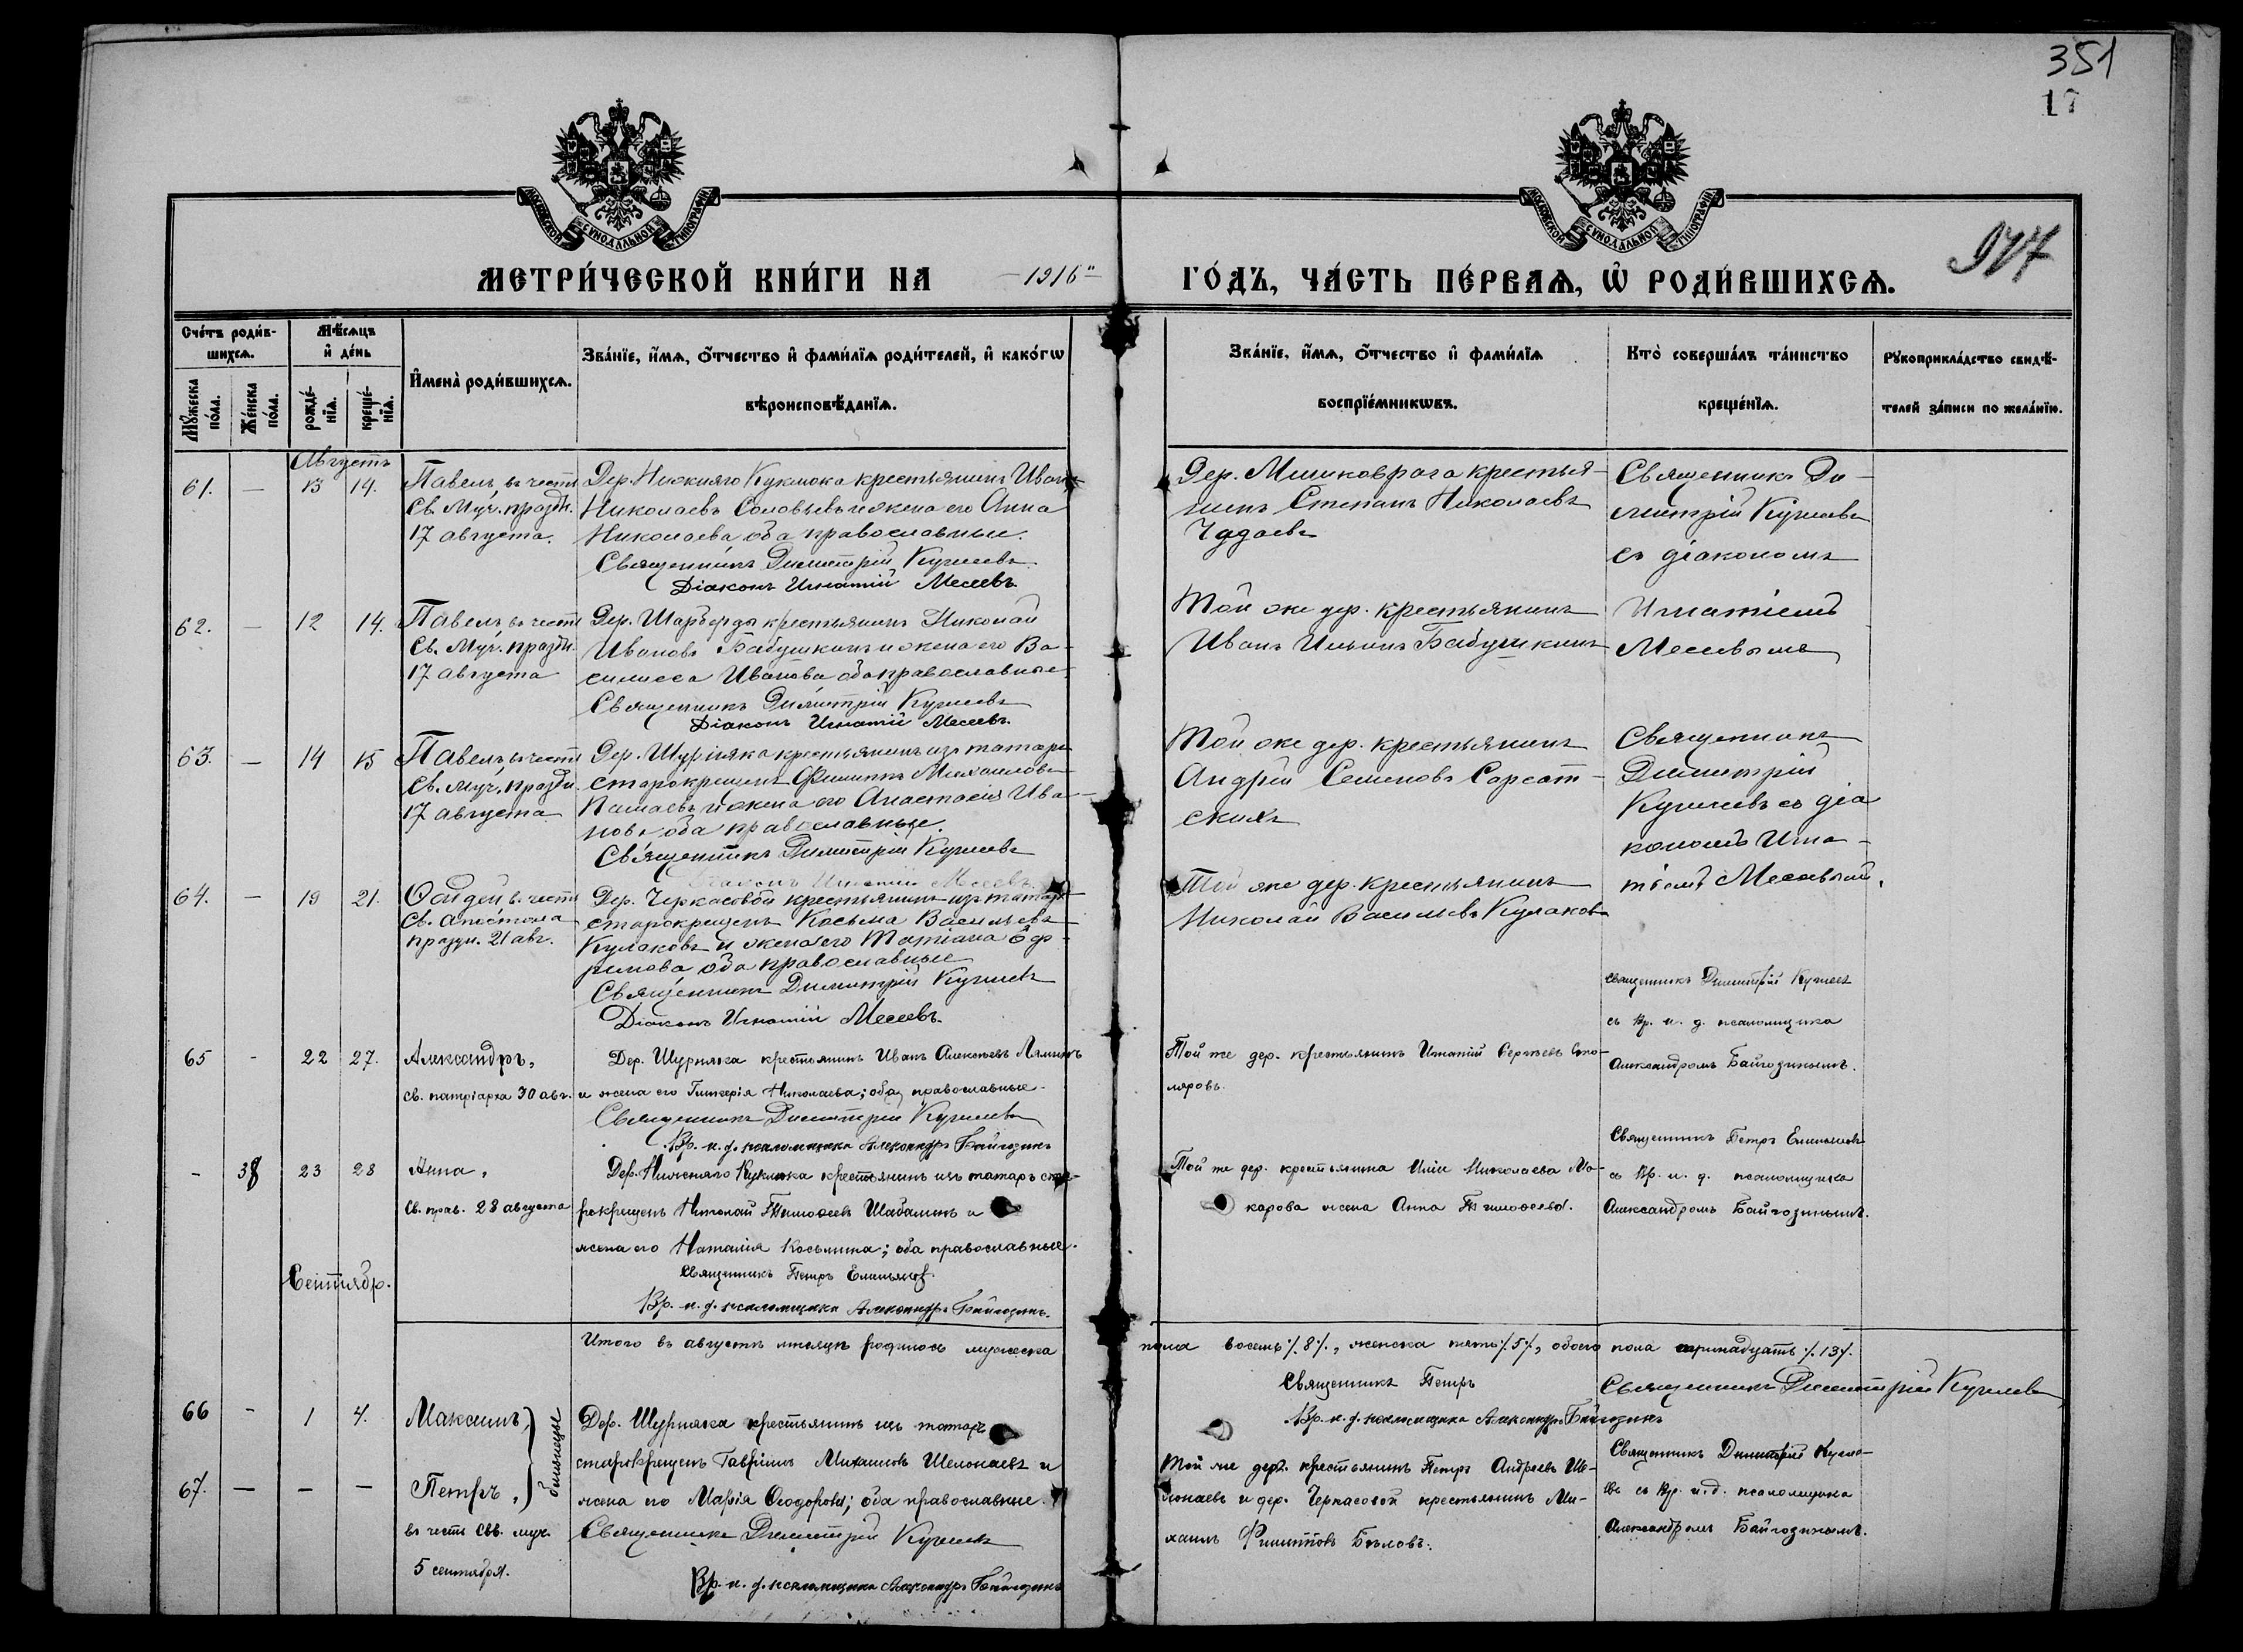 351
17
МОСКОВСКОЙ СѴНОДАЛЬНОЙ ТИПОГРАФІИ
МОСКОВСКОЙ СѴНОДАЛЬНОЙ ТИПОГРАФІИ
977
МЕТРИ́ЧЕСКОЙ КНИ́ГИ НА —1916"—
ГО́ДЪ, ЧА́СТЬ ПЕ́РВАѦ, Ѡ҆ РОДИ́ВШИХСѦ.
Сче́тъ роди́в-
шихсѧ.
Мꙋ́жеска
по́ла.
Же́нска
по́ла.
Мѣ́сѧцъ
и҆ де́нь
рожде́-
нїѧ.
креще́-
нїѧ.
И҆мена̀ роди́вшихсѧ.
Зва́нїе, и҆́мѧ, ѻ҆́тчество и҆ фами́лїѧ роди́телей, и҆ како́гѡ
вѣроисповѣ́данїѧ.
Зва́нїе, и҆́мѧ, ѻ҆́тчество и҆ фами́лїѧ
воспрїе́мникѡвъ.
Кто̀ соверша́лъ та́инство
креще́нїѧ.
Рꙋкоприкла́дство свидѣ́-
телей за́писи по жела́нїю.
Августъ
61. — 13 14.
Павелъ, въ честь
Св. Муч. праздн.
17 августа.
Дер. Нижняго Кукмока крестьянинъ Иванъ
Николаевъ Соловьевъ и жена его Анна
Николаева оба православные.
Священникъ Димитрій Кузнецовъ
Діаконъ Игнатій Месеевъ.
Дер. крестья-
нинъ Степанъ Николаевъ
Чадаевъ
Священникъ Ди-
митрій
съ діакономъ
62. — 12 14.
Павелъ въ честь
Св. Муч. праздн.
17 августа
Дер. крестьянинъ Николай
Ивановъ Бабушкинъ и жена его Ва-
силисса Иванова оба православные.
Священникъ Димитрій
Діаконъ Игнатій Месеевъ.
Той же дер. крестьянинъ
Иванъ Ильинъ Бабушкинъ
Игнатіемъ
Месеевымъ
63. — 14 15
Павелъ, въ честь
Св. муч. праздн.
17 августа
Дер. Шурняка крестьянинъ изъ татаръ
старокрещенъ Филиппъ Михаиловъ
и жена его Анастасія Ива-
нова оба православные.
Священникъ Димитрій
Діаконъ Игнатій Месеевъ.
Той же дер. крестьянинъ
Андрей Семеновъ
Священникъ
Димитрій
съ діа
кономъ Игна-
тіемъ Месеевымъ.
64. — 19 21.
Ѳаддей въ честь
Св. Апостола
праздн. 21 авг.
Дер. Черкасовой крестьянинъ изъ татаръ
старокрещенъ Косьма Васильевъ
Кулаковъ и жена его Татіана Еф-
ремова оба православные
Священникъ Димитрій
Діаконъ Игнатій Месеевъ.
Той же дер. крестьянинъ
Николай Васильевъ Кулаковъ
65 - 22 27.
Александръ,
Св. патріарха 30 авг.
Дер. Шурняка крестьянинъ Иванъ Алексѣевъ Ляминъ
и жена его Гликерія Николаева; оба православные.
Священникъ Димитрій
Вр. и. д. псаломщика Александръ Байгозинъ
Той же дер. крестьянинъ Игнатій Сергѣевъ Сто-
ляровъ.
Священникъ Димитрій
съ вр. и. д. псаломщика
Александромъ Байгозинымъ.
- 38 23 28
Анна,
Св. прав. 28 августа
Дер. Нижняго Кукмока крестьянинъ изъ татаръ ста-
рокрещенъ Николай Тимоѳеевъ Шабалинъ и
жена его Наталія Косьмина; оба православные.
Священникъ Петръ Емельяновъ.
Вр. и. д. псаломщика Александръ Байгозинъ.
Той же дер. крестьянина Иліи Николаева Ма-
карова жена Анна Тимоѳеева.
Священникъ Петръ Емельяновъ
съ вр. и. д. псаломщика
Александромъ Байгозинымъ.
Сентябр.
Итого въ августѣ мѣсяцѣ родилось мужеска
пола восемь /.8/., женска пять /.5/., обоего пола тринадцать /.13/.
Священникъ Петръ
Священникъ Димитрій
Вр. и. д. псаломщика Александръ Байгозинъ
66 - 1 4.
Максимъ,
67. — — —
Петръ,
близнецы
въ честь Свв. муч.
5 сентября.
Дер. Шурняка крестьянинъ изъ татаръ
старокрещенъ Гавріилъ Михаиловъ Шелонаевъ и
жена его Марія Ѳеодорова; оба православные.
Священникъ Димитрій
Вр. и. д. псаломщика Александръ Байгозинъ
Той же дер. крестьянинъ Петръ Андреевъ Ше-
лонаевъ и дер. Черкасовой крестьянинъ Ми-
хаилъ Филипповъ Бѣловъ.
Священникъ Димитрій
съ вр. и. д. псаломщика
Александромъ Байгозинымъ.